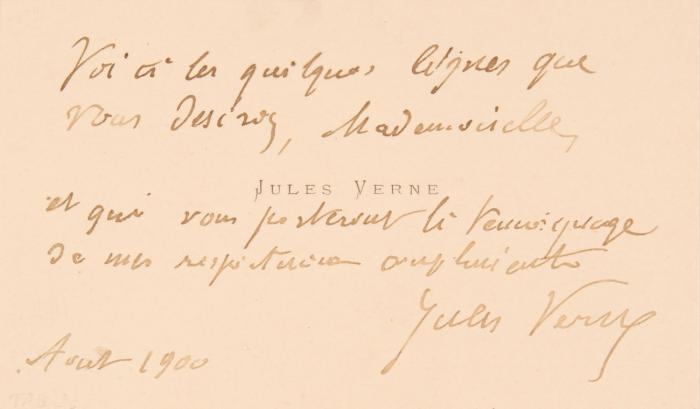 Voici les quelques lignes que
vous désirez, Mademoiselle,
JULES VERNE
et qui vous porteront le témoignage
de mes respectueux compliments
Jules Verne
Août 1900